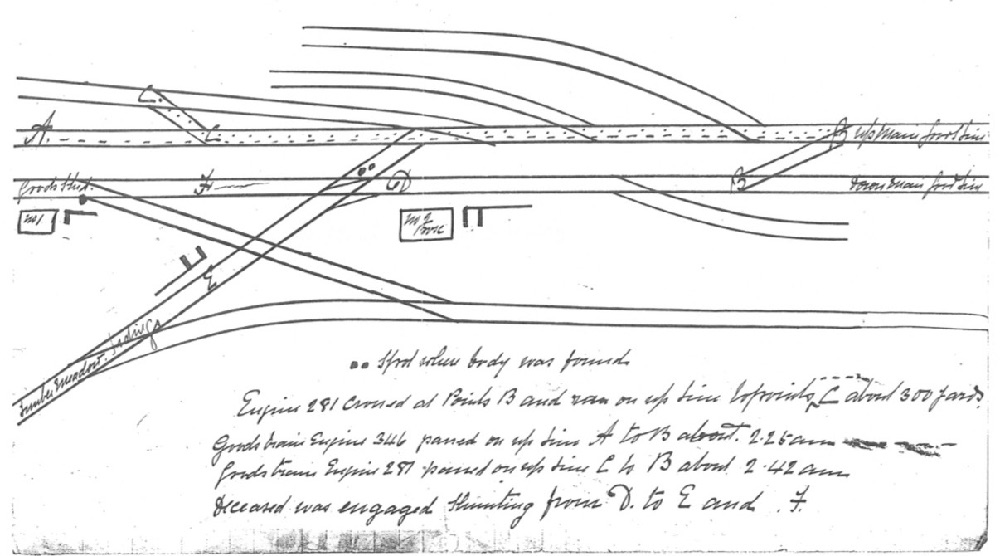 A.
C
C
B up Main
Goods Shed.
F
D
B
Down Main
No 1
No 2
E
Timber Meadow Sidings
Spot where body was found
Engine 281 Crossed at Points B and ran on up line to points C about 300 yards.
Goods train Engine 346 passed on up line A to B about. 2.25am
Goods train Engine 281 passed on up line C to B about 2.42am
Deceased was engaged Shunting from D. to E and F.